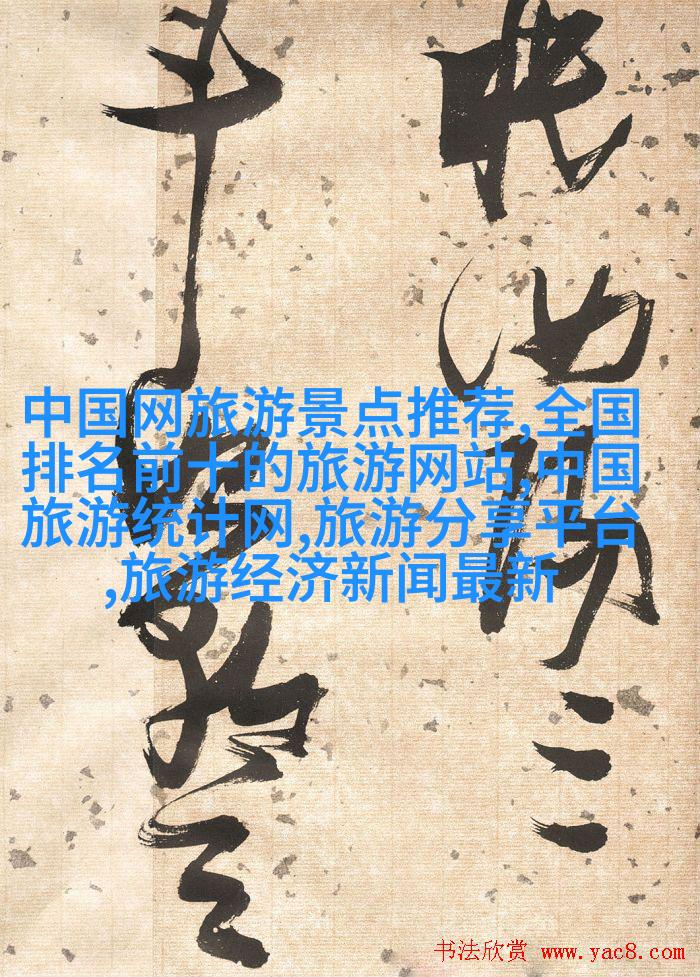 眠汝陽三
斗始朝天
中国网旅游景点推荐,全国
排名前十的旅游网站,中国
旅游统计网,旅游分享平台
,旅游经济新闻最新
书法欣赏 www.yac8.com